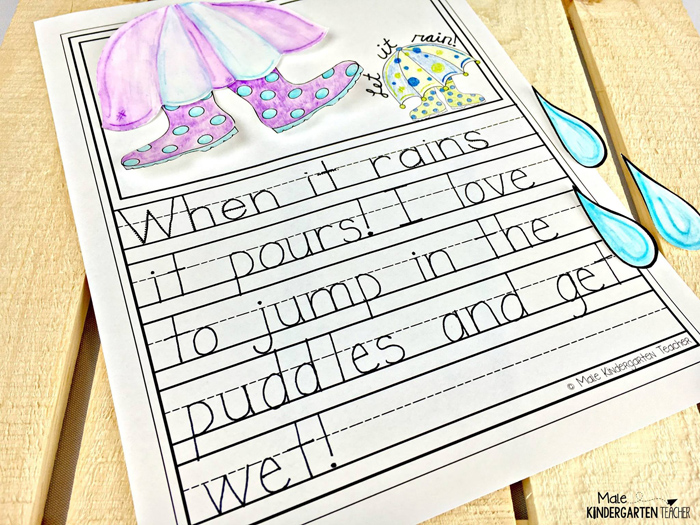 let it rain!
When it rains
it pours! I love
to jump in the
puddles and get
wet!
© Male Kindergarten Teacher
Male
KINDERGARTEN TEACHER